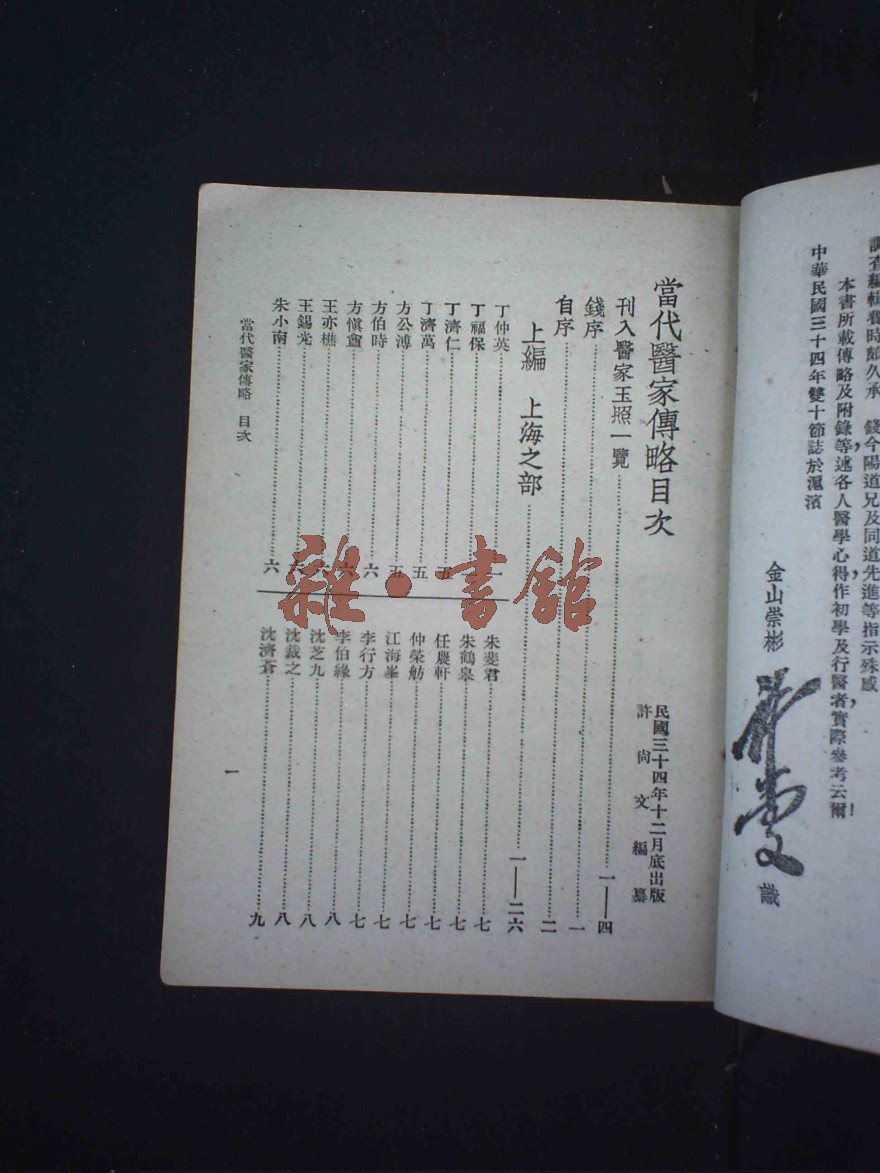 調查編輯費時頗久承　錢今陽道兄及同道先進等指示殊感
本書所載傳略及附錄等，述各人醫學心得，作初學及行醫者實際參考云爾！
中華民國三十四年雙十節誌於滬濱
金山崇彬
許尚文
識
當代醫家傳略目次
民國三十四年十二月底出版
許尚文編纂
刊入醫家玉照一覽……一——四
錢序……一
自序……二
上編　上海之部……一——二六
丁仲英
丁福保
丁濟仁……五
丁濟萬……五
方公溥……五
方伯時……六
方愼盦……六
王亦樵
王錫光
朱小南……六
朱斐君……七
朱鶴皋……七
任農軒……七
仲榮舫……七
江海峯……七
李行方……七
李伯緣……八
沈芝九……八
沈裁之……八
沈濟蒼……九
當代醫家傳略　目次
一
雜·書館